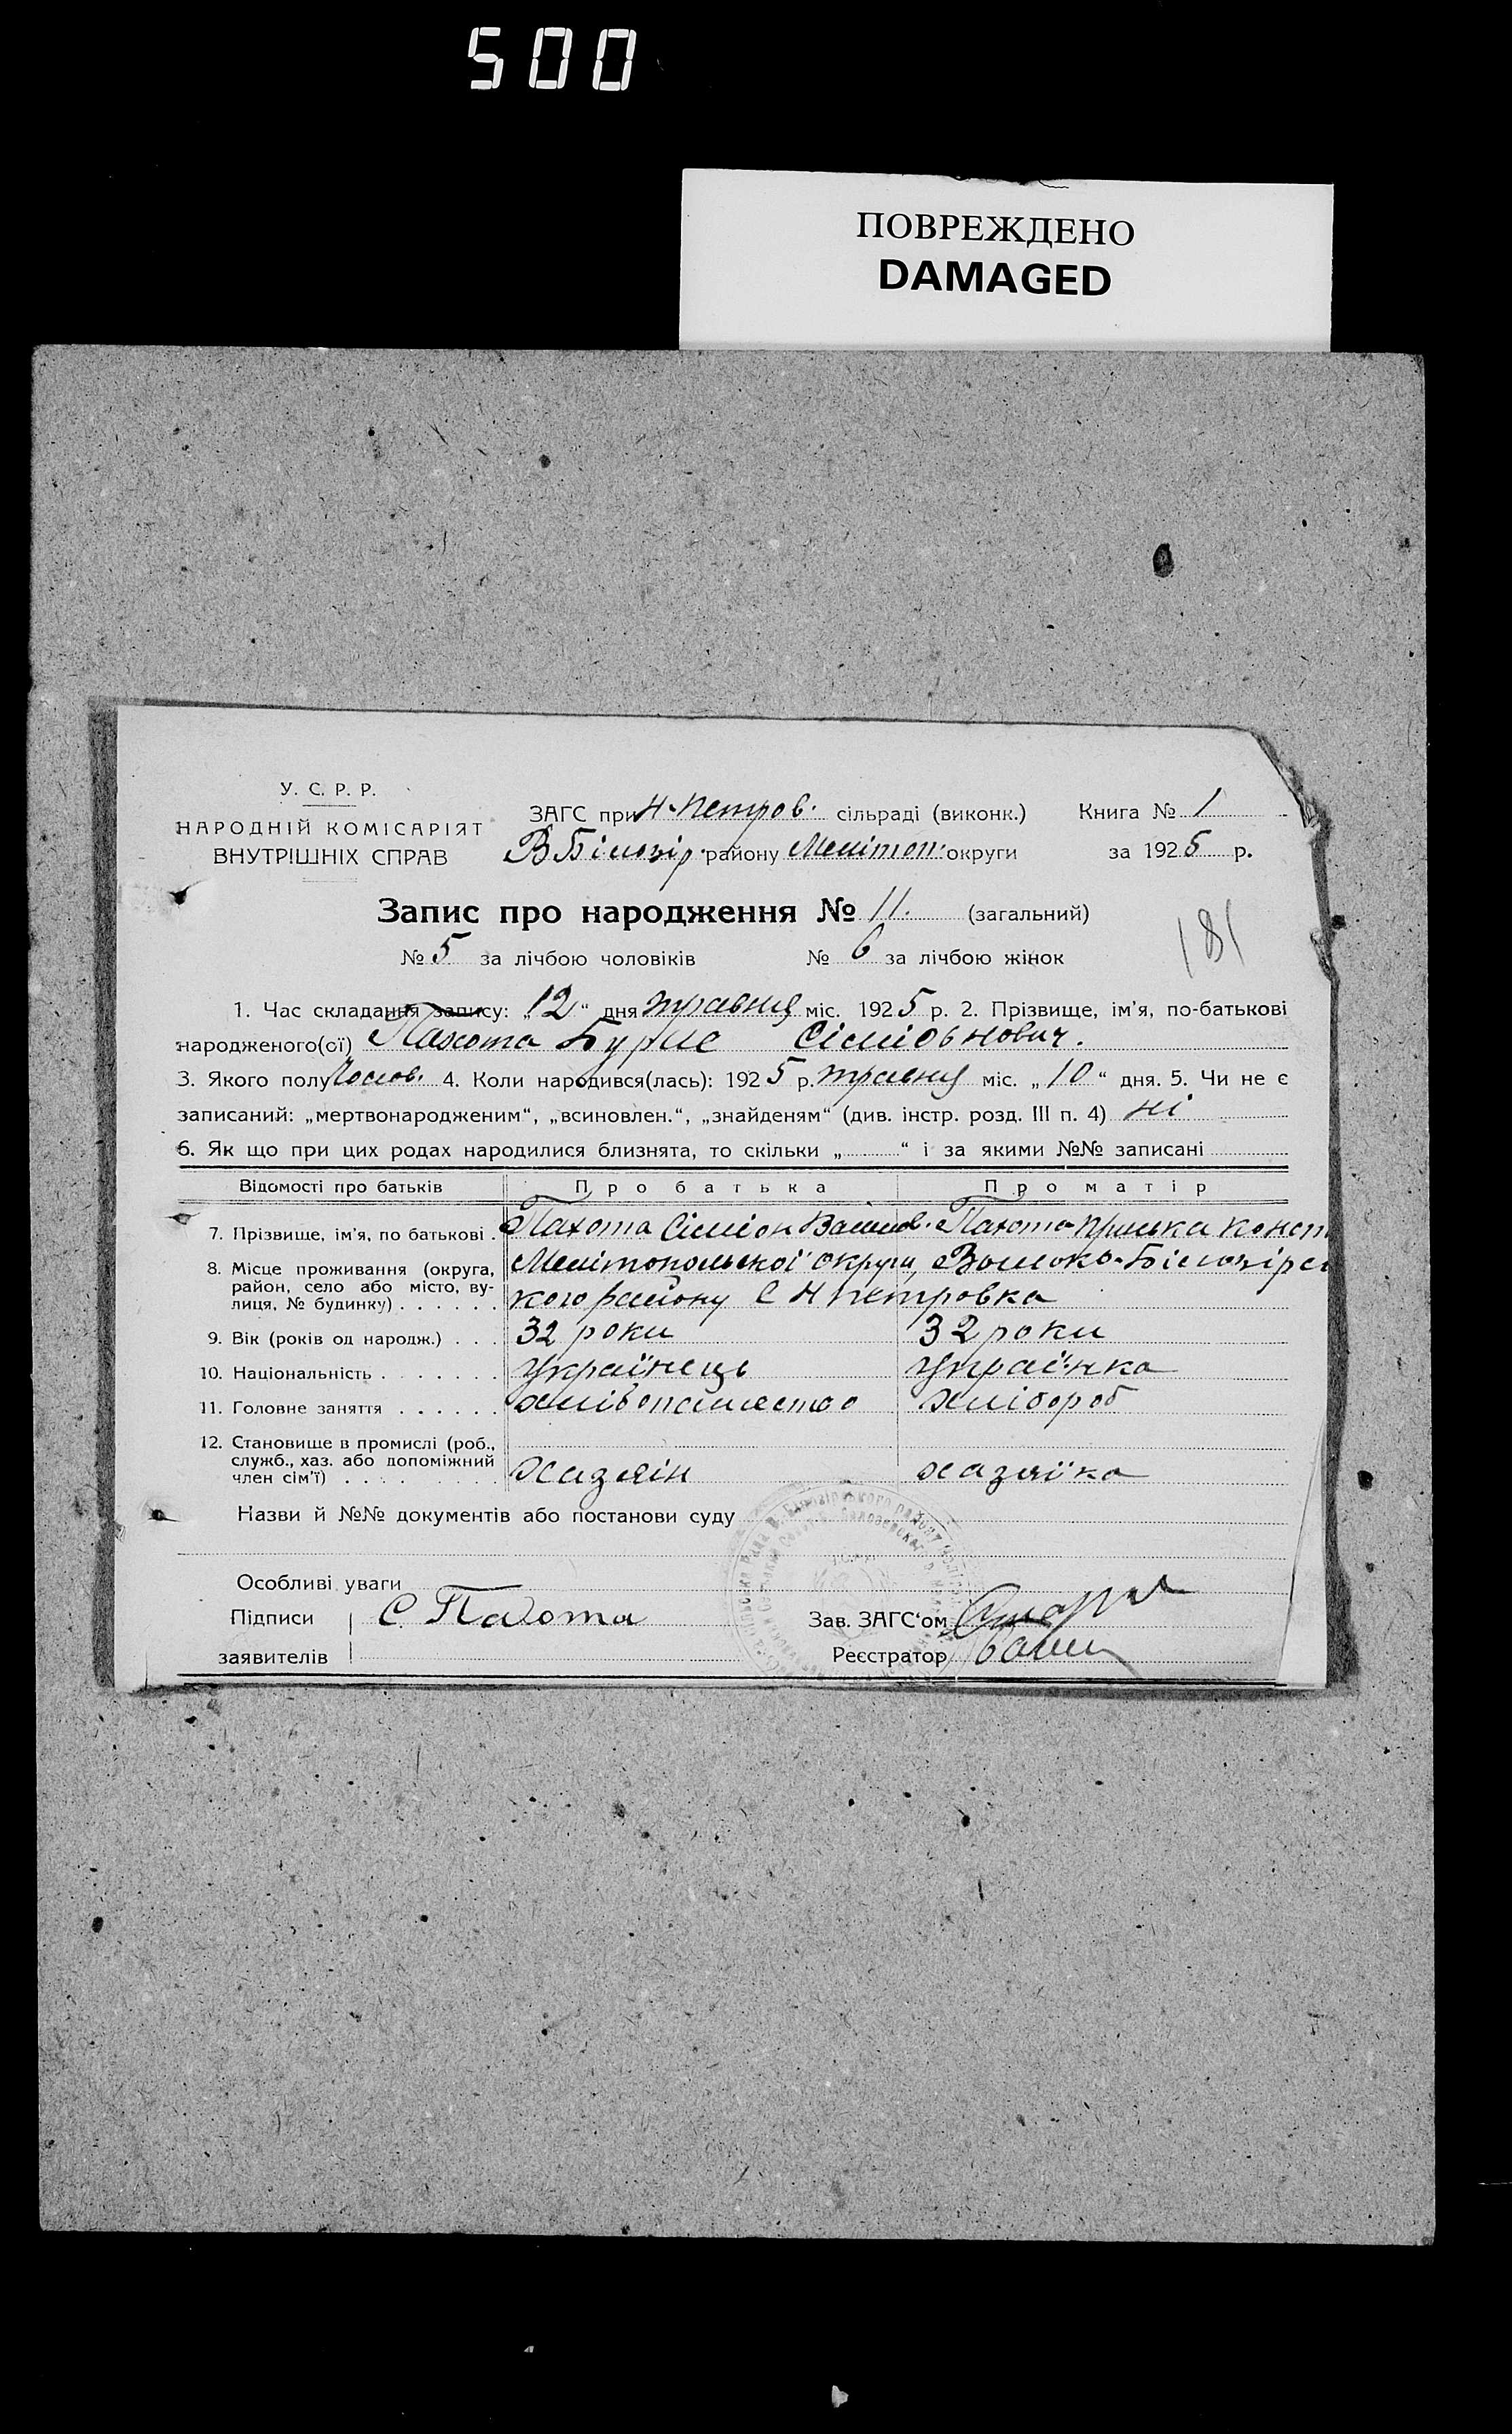 500
ПОВРЕЖДЕНО
DAMAGED
У. С. Р. Р.
НАРОДНІЙ КОМІСАРІЯТ
ВНУТРІШНІХ СПРАВ
ЗАГС при Н-Петров. сільраді (виконк.) Книга № 1
В Білозір. району Меліт​оп. округи за 1925 р.
Запис про народження № 11. (загальний)
№ 5 за лічбою чоловіків № 6 за лічбою жінок
181
1. Час складання запису: „12“ дня травня міс. 1925 р. 2. Прізвище, ім'я, по-батькові
народженого(ої) Пахота Сіміонович.
3. Якого полу Чолов. 4. Коли народився(лась): 1925 р. травня міс. „10“ дня. 5. Чи не є
записаний: „мертвонародженим“, „всиновлен.“, „знайденям“ (див. інстр. розд. III п. 4) ні
6. Як що при цих родах народилися близнята, то скільки „ “ і за якими №№ записані
Відомості про батьків Про батька Про матір
7. Прізвище, ім'я, по батькові . Пахота Сіміон Пахота Конст
8. Місце проживання (округа, район, село або місто, ву-лиця, № будинку) . . . . . . Мелітопольскої округи, Високо-Білозірсь
кого району С Н Петровка
9. Вік (років од народж.) . . . 32 роки 32 роки
10. Національність . . . . . . . Українець Українка
11. Головне заняття . . . . . . хлібопашество хлібороб
12. Становище в промислі (роб.,
служб., хаз. або допоміжний
член сім'ї) . . . . . . . . хазяїн хазяйка
Назви й №№ документів або постанови суду
Особливі уваги
Підписи С. Пахота Зав. ЗАГС‘ом
заявителів Реєстратор